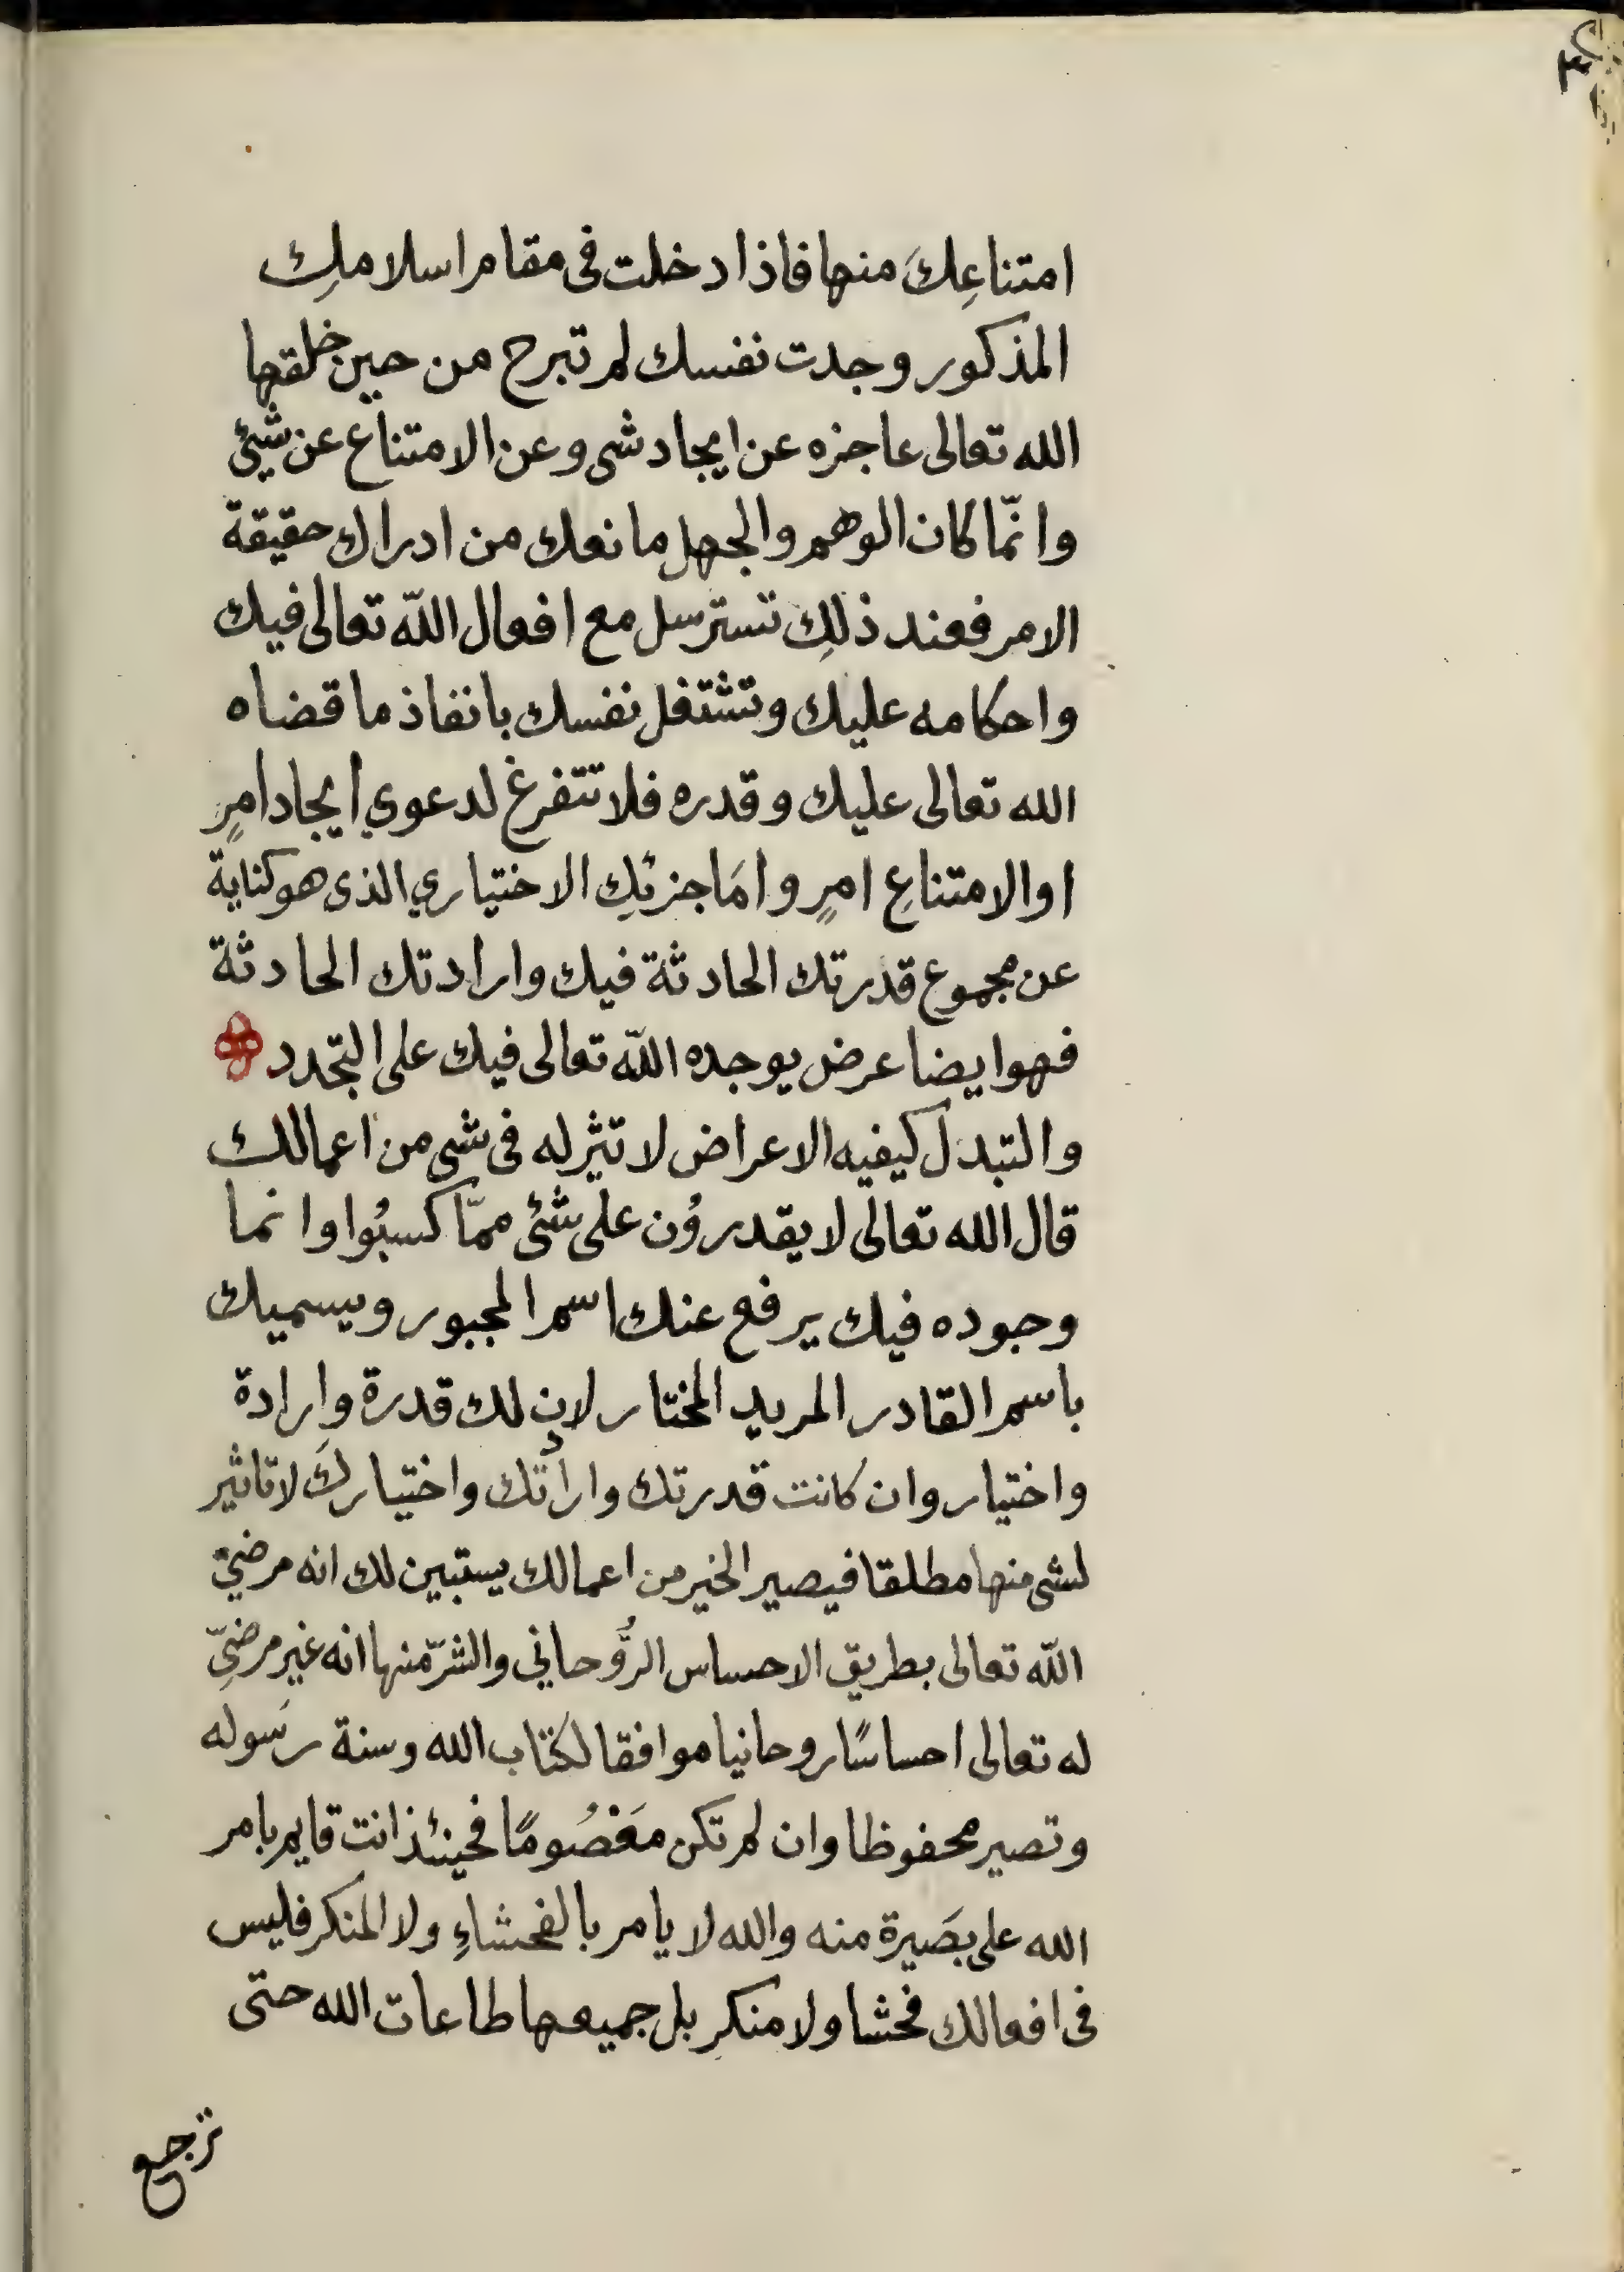 امتناعِكَ منها فاذا دخلت فى مقام اسلامكِ
المذكور وجدت نفسك لم تبرح من حين خلقها
الله تعالى عاجزه عن ايجاد شى وعن الامتناع عن شيئ
وانّما كان الوهم والجهل مانعك من ادراك حقيقة
الامر فعند ذلكِ تسترسل مع افعال اللّه تعالى فيك
واحكامه عليك وتشتغل نفسك بانفاذ ما قضاه
الله تعالى عليك وقدره فلا تتفرغ لدعوي ايجاد امرٍ
او الامتناعِ امرٍ وامَا جزئكِ الاختياري الذى هو كناية
عن مجموع قدرتك الحادثة فيك وارادتك الحادثة
فهو ايضا عرض يوجده اللّه تعالى فيك على التجدد
والتبدل كيفيه الاعراض لا تثر له فى شى من اعمالك
قال الله تعالى لا يقدروُن على شئ ممّا كسبُوا وانما
وجوده فيك يرفع عنك اسم المجبور ويسميك
باسم القادر المريد المختار لان لك قدرة وارادة
واختيار وان كانت قدرتك وارادتك واختياركَ لا تاثير
لشى منها مطلقا فيصير الخير من اعمالك يستبين لك انه مرضيّ
اللّه تعالى بطريق الاحساس الرُّوحاني والشرّ منها انه غير مرضيّ
له تعالى احساسًا روحانيا موافقا لكتاب الله وسنة رَسوله
وتصير محفوظا وان لم تكن مَعْصُومًا فحينئذ انت قايم بامر
الله على بصَيرة منه والله لا يامر بالفحشاءِ ولا المنكر فليس
فى افعالك فحشا ولا منكر بل جميعها طاعات الله حتى
ترجع